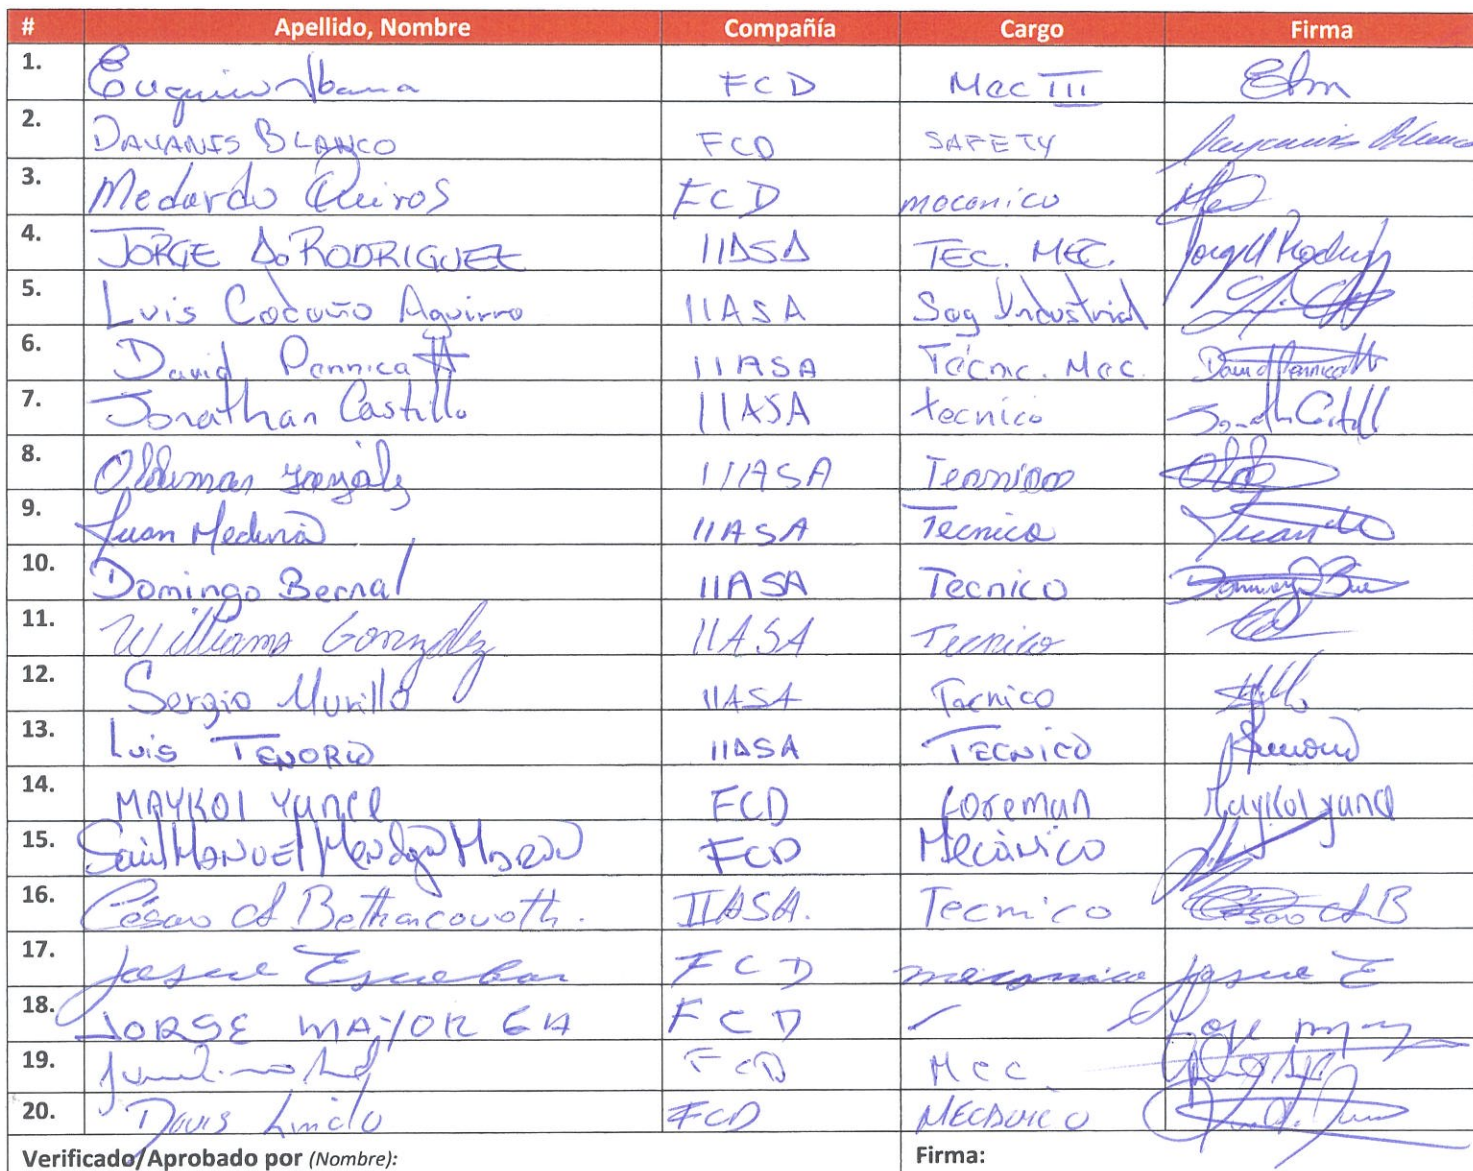 # Apellido, Nombre Compañía Cargo Firma
1. Euquinio Abama FCD Mec III
2. DAYANIS BLANCO FCD SAFETY Dayanis Blanco
3. Medardo Queiros FCD mecanico Med
4. JORGE A. RODRIGUEZ IIASA TEC. MEC. Jorge A Rodriguez
5. Luis Cedeño Aguirre IIASA Seg Industrial
6. David Pennicott IIASA Técnic. Mec. David Pennicott
7. Jonathan Castillo IIASA tecnico Jonath Castill
8. González IIASA
9. Juan Medina IIASA Tecnico Juan M
10. Domingo Bernal IIASA Tecnico
11. Williams González IIASA Tecnico
12. Sergio Murillo IIASA Tecnico
13. Luis TENORIO IIASA TECNICO
14. MAYKOl YANCE FCD foreman Maykol yance
15. Saúl MANUEL Mendoza FCD Mecànico
16. César A Bethancourth. IIASA. Tecnico César A B
17. Josue Escobar FCD mecanico Josue E
18. JORGE MAYORGA FCD
19. FCD Mec
20. Davis Lindo FCD MECANICO
Verificado/Aprobado por (Nombre): Firma: